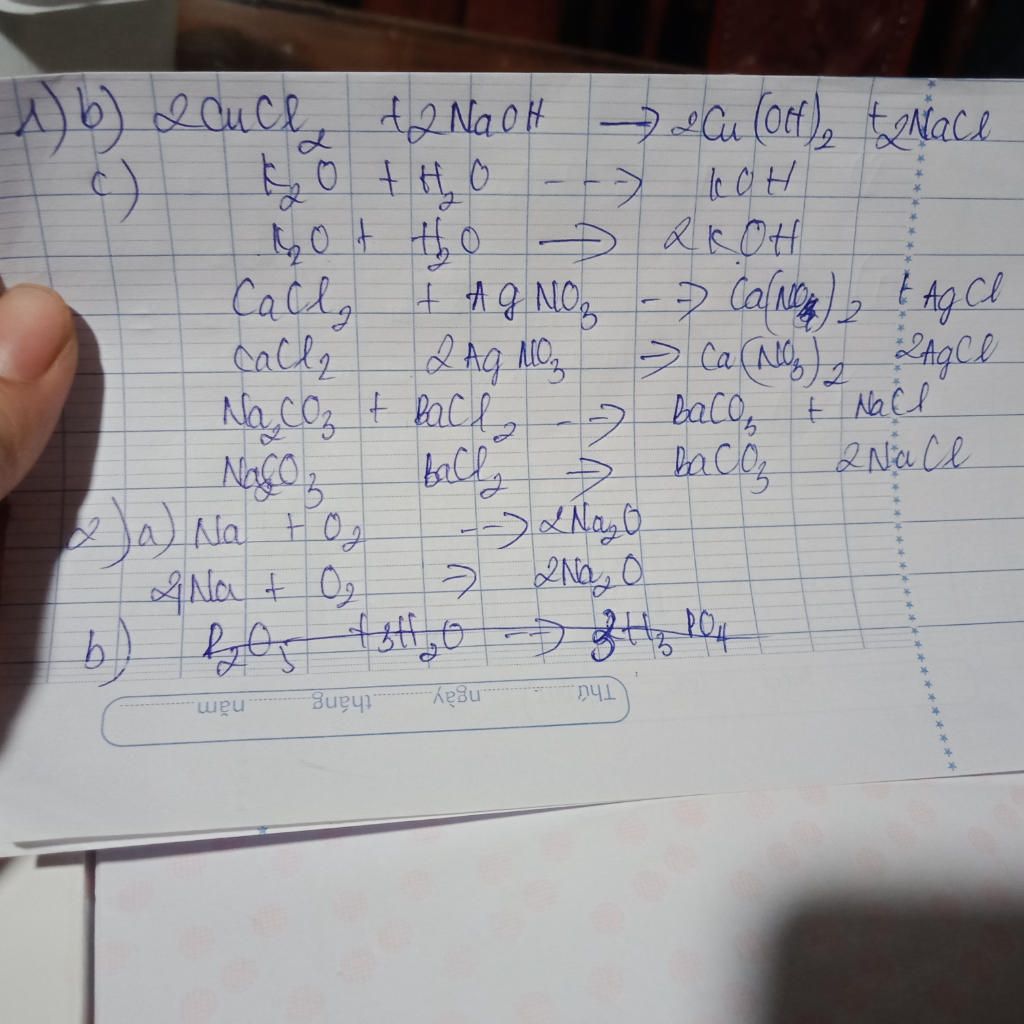 1) b) 2CuCl2 + 2NaOH → 2Cu(OH)2 + 2NaCl
c) K2O + H2O --→ KOH
K2O + H2O → 2KOH
CaCl2 + AgNO3 --→ Ca(NO3)2 + AgCl
CaCl2 2AgNO3 → Ca(NO3)2 2AgCl
Na2CO3 + BaCl2 --→ BaCO3 + NaCl
Na2CO3 BaCl2 → BaCO3 2NaCl
2) a) Na + O2 --→ 2Na2O
4Na + O2 → 2Na2O
b) P2O5 + 3H2O --→ H3PO4
Thứ ngày tháng năm